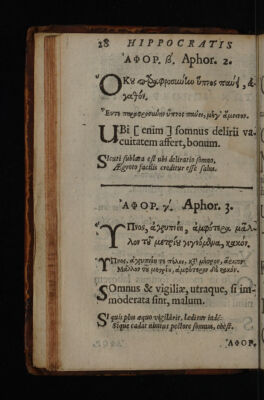 28 HIPPOCRATIS
ἈΦΟΡ. β'. Aphor. 2.
ὍΚου παραφροσύνην ὕπνος παύει, ἀ-
γαθόν.
ὕπνος παύει, μέγ' ἄμεινον.
UBi [ enim ] somnus delirii va-
cuitatem affert, bonum.
Sicuti sublata est ubi deliratio somno,
Ægroto facilis creditur esse salus.
ἈΦΟΡ. γ'. Aphor. 3.
ὝΠνος, ἀγρυπνίη, ἀμφότερα μᾶλ-
λον τοῦ μετρίου γινόμενα, κακόν.
ὝΠνος, ἀγρυπνίη
Μᾶλλον τοῦ μετρίου, ἀμφότερον κακόν.
SOmnus & vigiliæ, utraque, si im-
moderata sint, malum.
SI quis plus æquo vigilârit, læditur inde:
pectore somnum, obest.
ἈΦΟΡ.